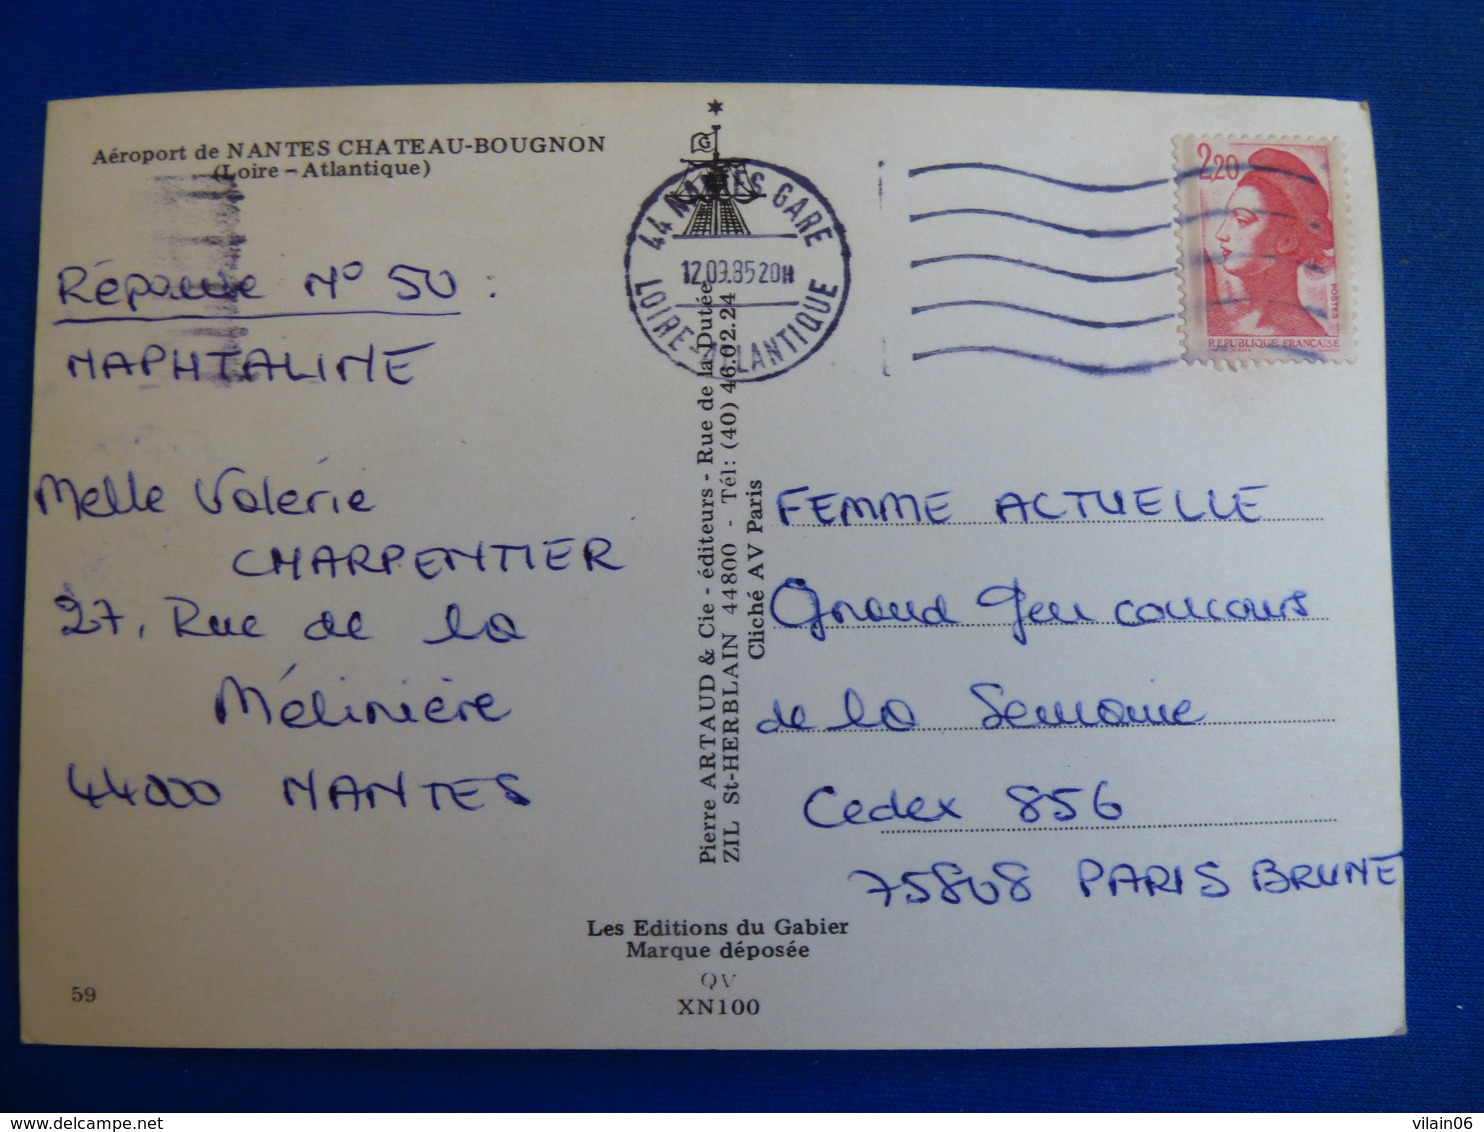 Aéroport de NANTES CHATEAU-BOUGNON
(Loire - Atlantique)
Réponse N° 50 :
NAPHTALINE
Melle Valérie
CHARPENTIER
27, Rue de la
Mélinière
44000 NANTES
44 NANTES GARE
12.09.85 20H
LOIRE-ATLANTIQUE
2,20
POSTES
REPUBLIQUE FRANÇAISE
Pierre ARTAUD & Cie - éditeurs - Rue de la Dutée
ZIL St-HERBLAIN 44800 - Tél: (40) 46.02.24
Cliché AV Paris
FEMME ACTUELLE
Grand Jeu concours
de la Semaine
Cedex 856
75808 PARIS BRUNE
Les Editions du Gabier
Marque déposée
QV
XN100
59
delcampe.net
vilain06